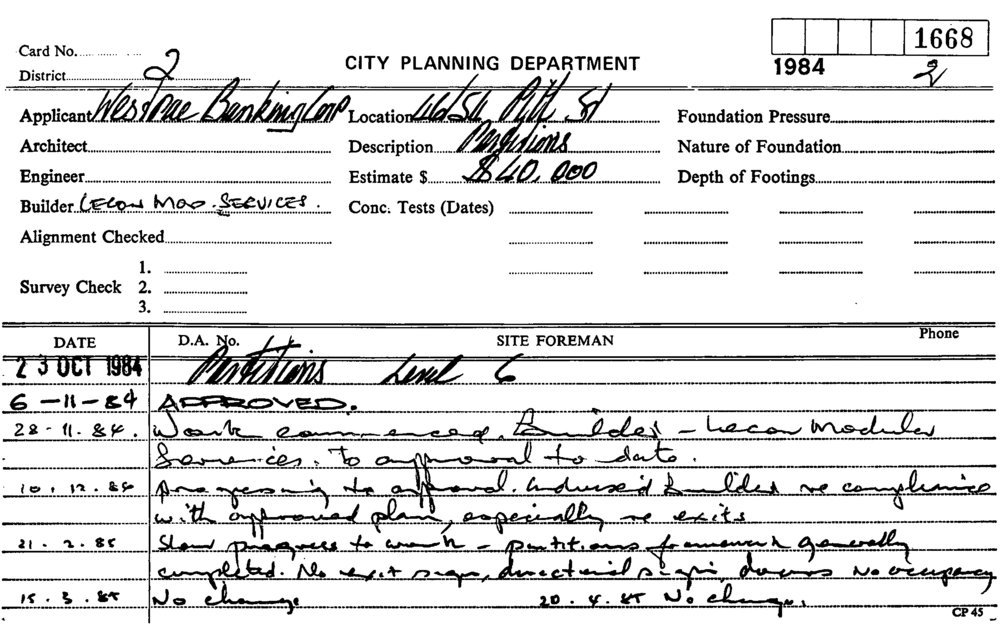 Card No.
1668
District 2
CITY PLANNING DEPARTMENT
1984
2
Applicant Westpac Banking Corp
Location 46/54 Pitt St
Foundation Pressure
Architect
Description Partitions
Nature of Foundation
Engineer
Estimate $ $40,000
Depth of Footings
Builder LECON MOD. SERVICES.
Conc. Tests (Dates)
Alignment Checked
1.
Survey Check 2.
3.
DATE
D.A. No.
SITE FOREMAN
Phone
23 OCT 1984
Partitions Level 6
6-11-84 APPROVED.
28.11.84. Work commenced. Builder - Lecon Modular
Services. To approval to date.
10.12.84 progressing to approval. Advised builder re compliance
with approved plan, especially re exits
21.2.85 Slow progress to work - partitions framework generally
completed. No exit signs, directional signs, doors No occupancy
15.3.85 No change 20.4.85 No change.
CP 45